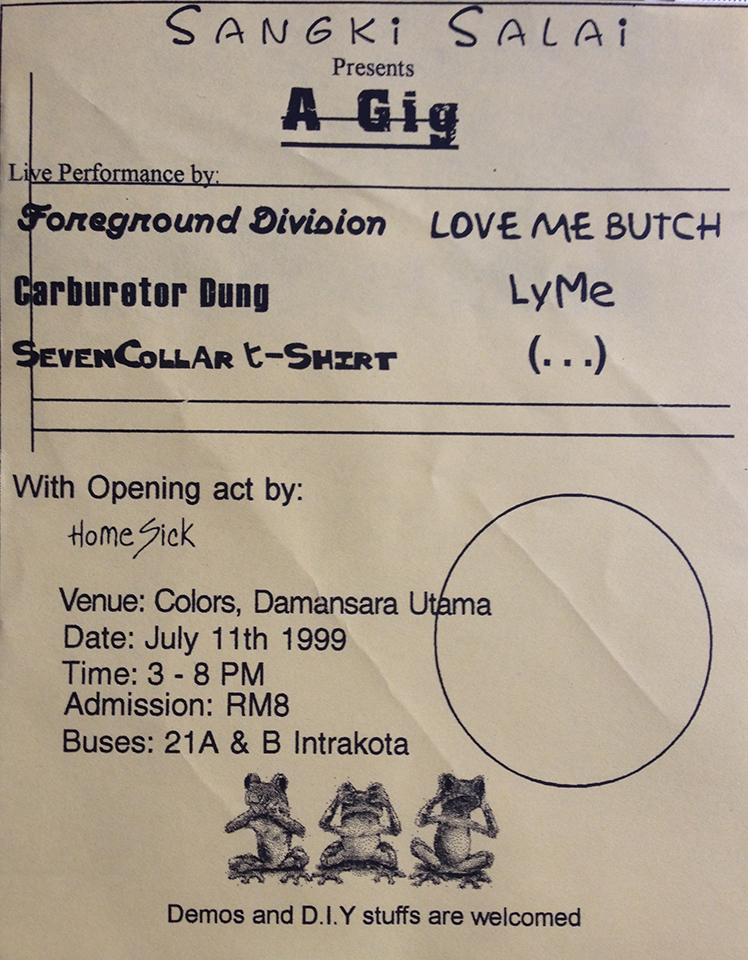 SANGKi SALAi
Presents
A Gig
Live Performance by:
Foreground Division LOVE ME BUTCH
Carburetor Dung LyMe
SEVENCOLLAR t-SHIRT (...)
With Opening act by:
HomeSick
Venue: Colors, Damansara Utama
Date: July 11th 1999
Time: 3 - 8 PM
Admission: RM8
Buses: 21A & B Intrakota
Demos and D.I.Y stuffs are welcomed